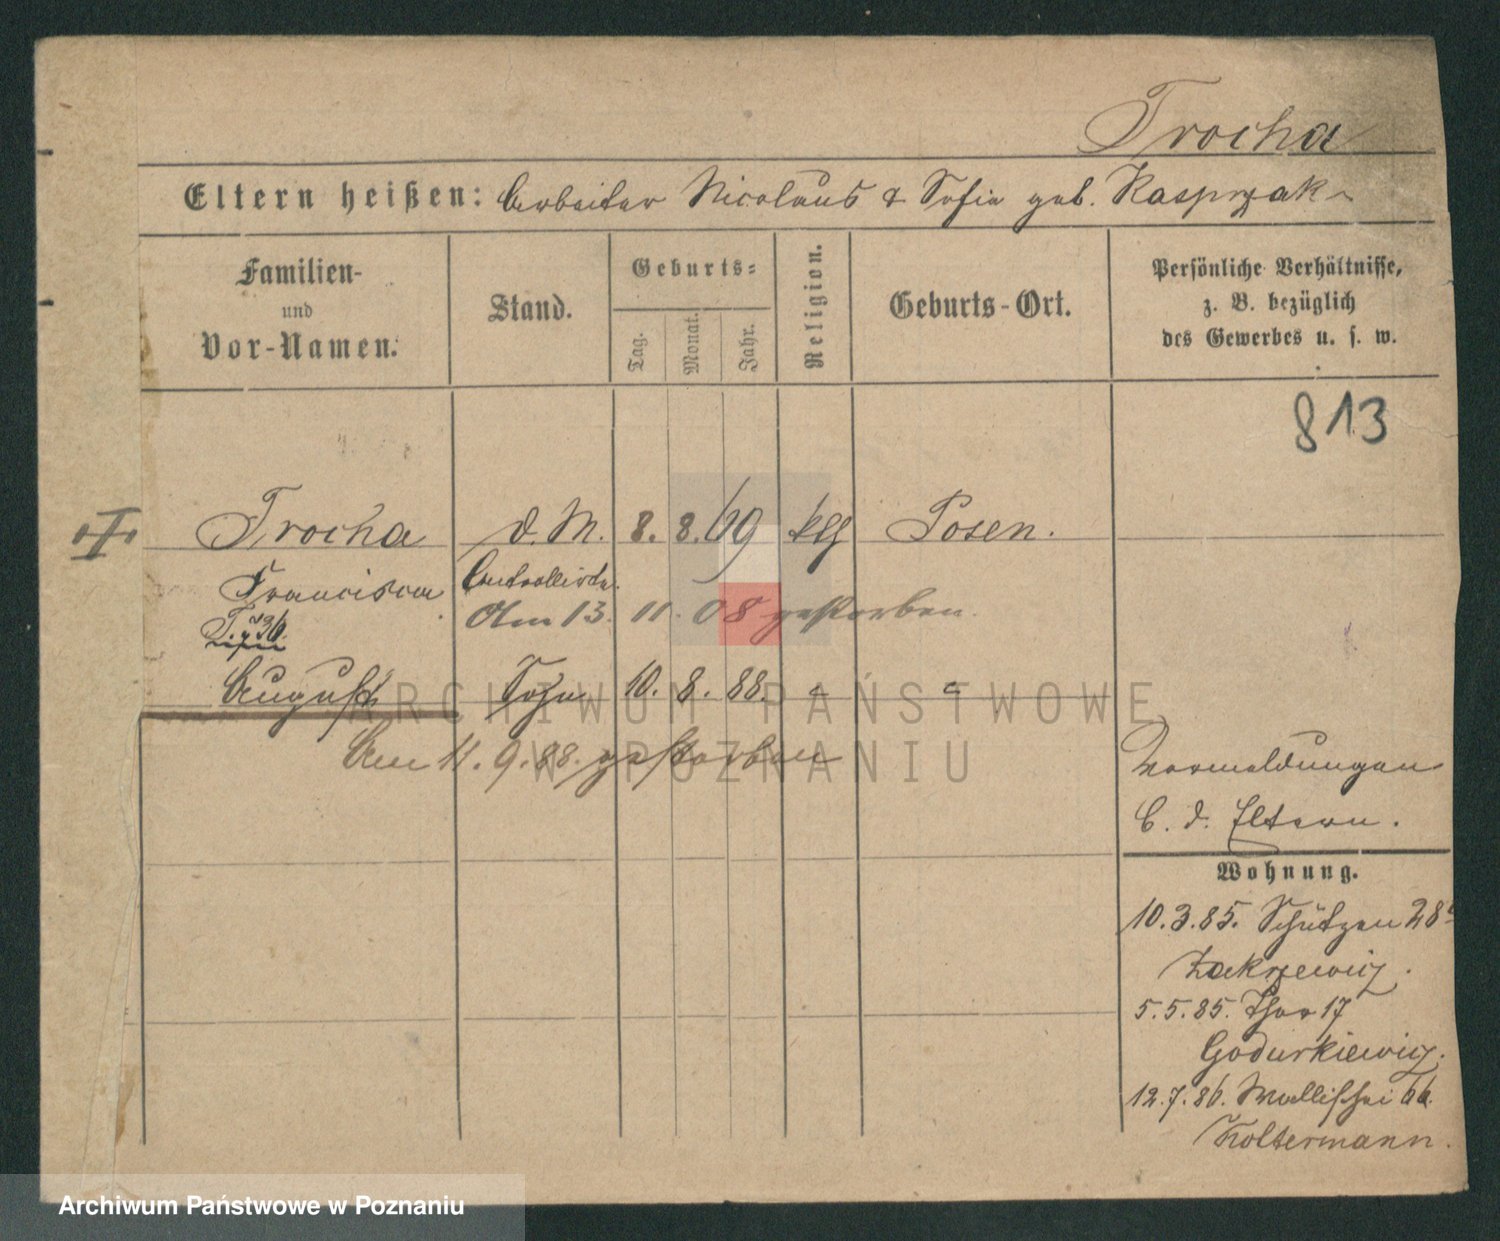 Trocha
Eltern heißen: Arbeiter Nicolaus & Sofia geb. Kasprzak
Familien-
und
Vor-Namen.
Stand.
Geburts-
Tag.
Monat.
Jahr.
Religion.
Geburts-Ort.
Persönliche Verhältnisse,
z. B. bezüglich
des Gewerbes u. s. w.
813
Trocha d. M. 8. 8. 69 klg Posen.
Francisca Controllirte.
Am 13. 11. 08 gestorben.
August Sohn 10. 8. 88.
Am 11. 9. 88. gestorben
ARCHIWUM PAŃSTWOWE
W POZNANIU
Vormeldungen
b. d. Eltern.
Wohnung.
10.3.85. Schützen 28
Zakrzewicz.
5.5.85. Thor 17
Godurkiewicz.
12.7.86. Wallischei 66.
Koltermann.
Archiwum Państwowe w Poznaniu